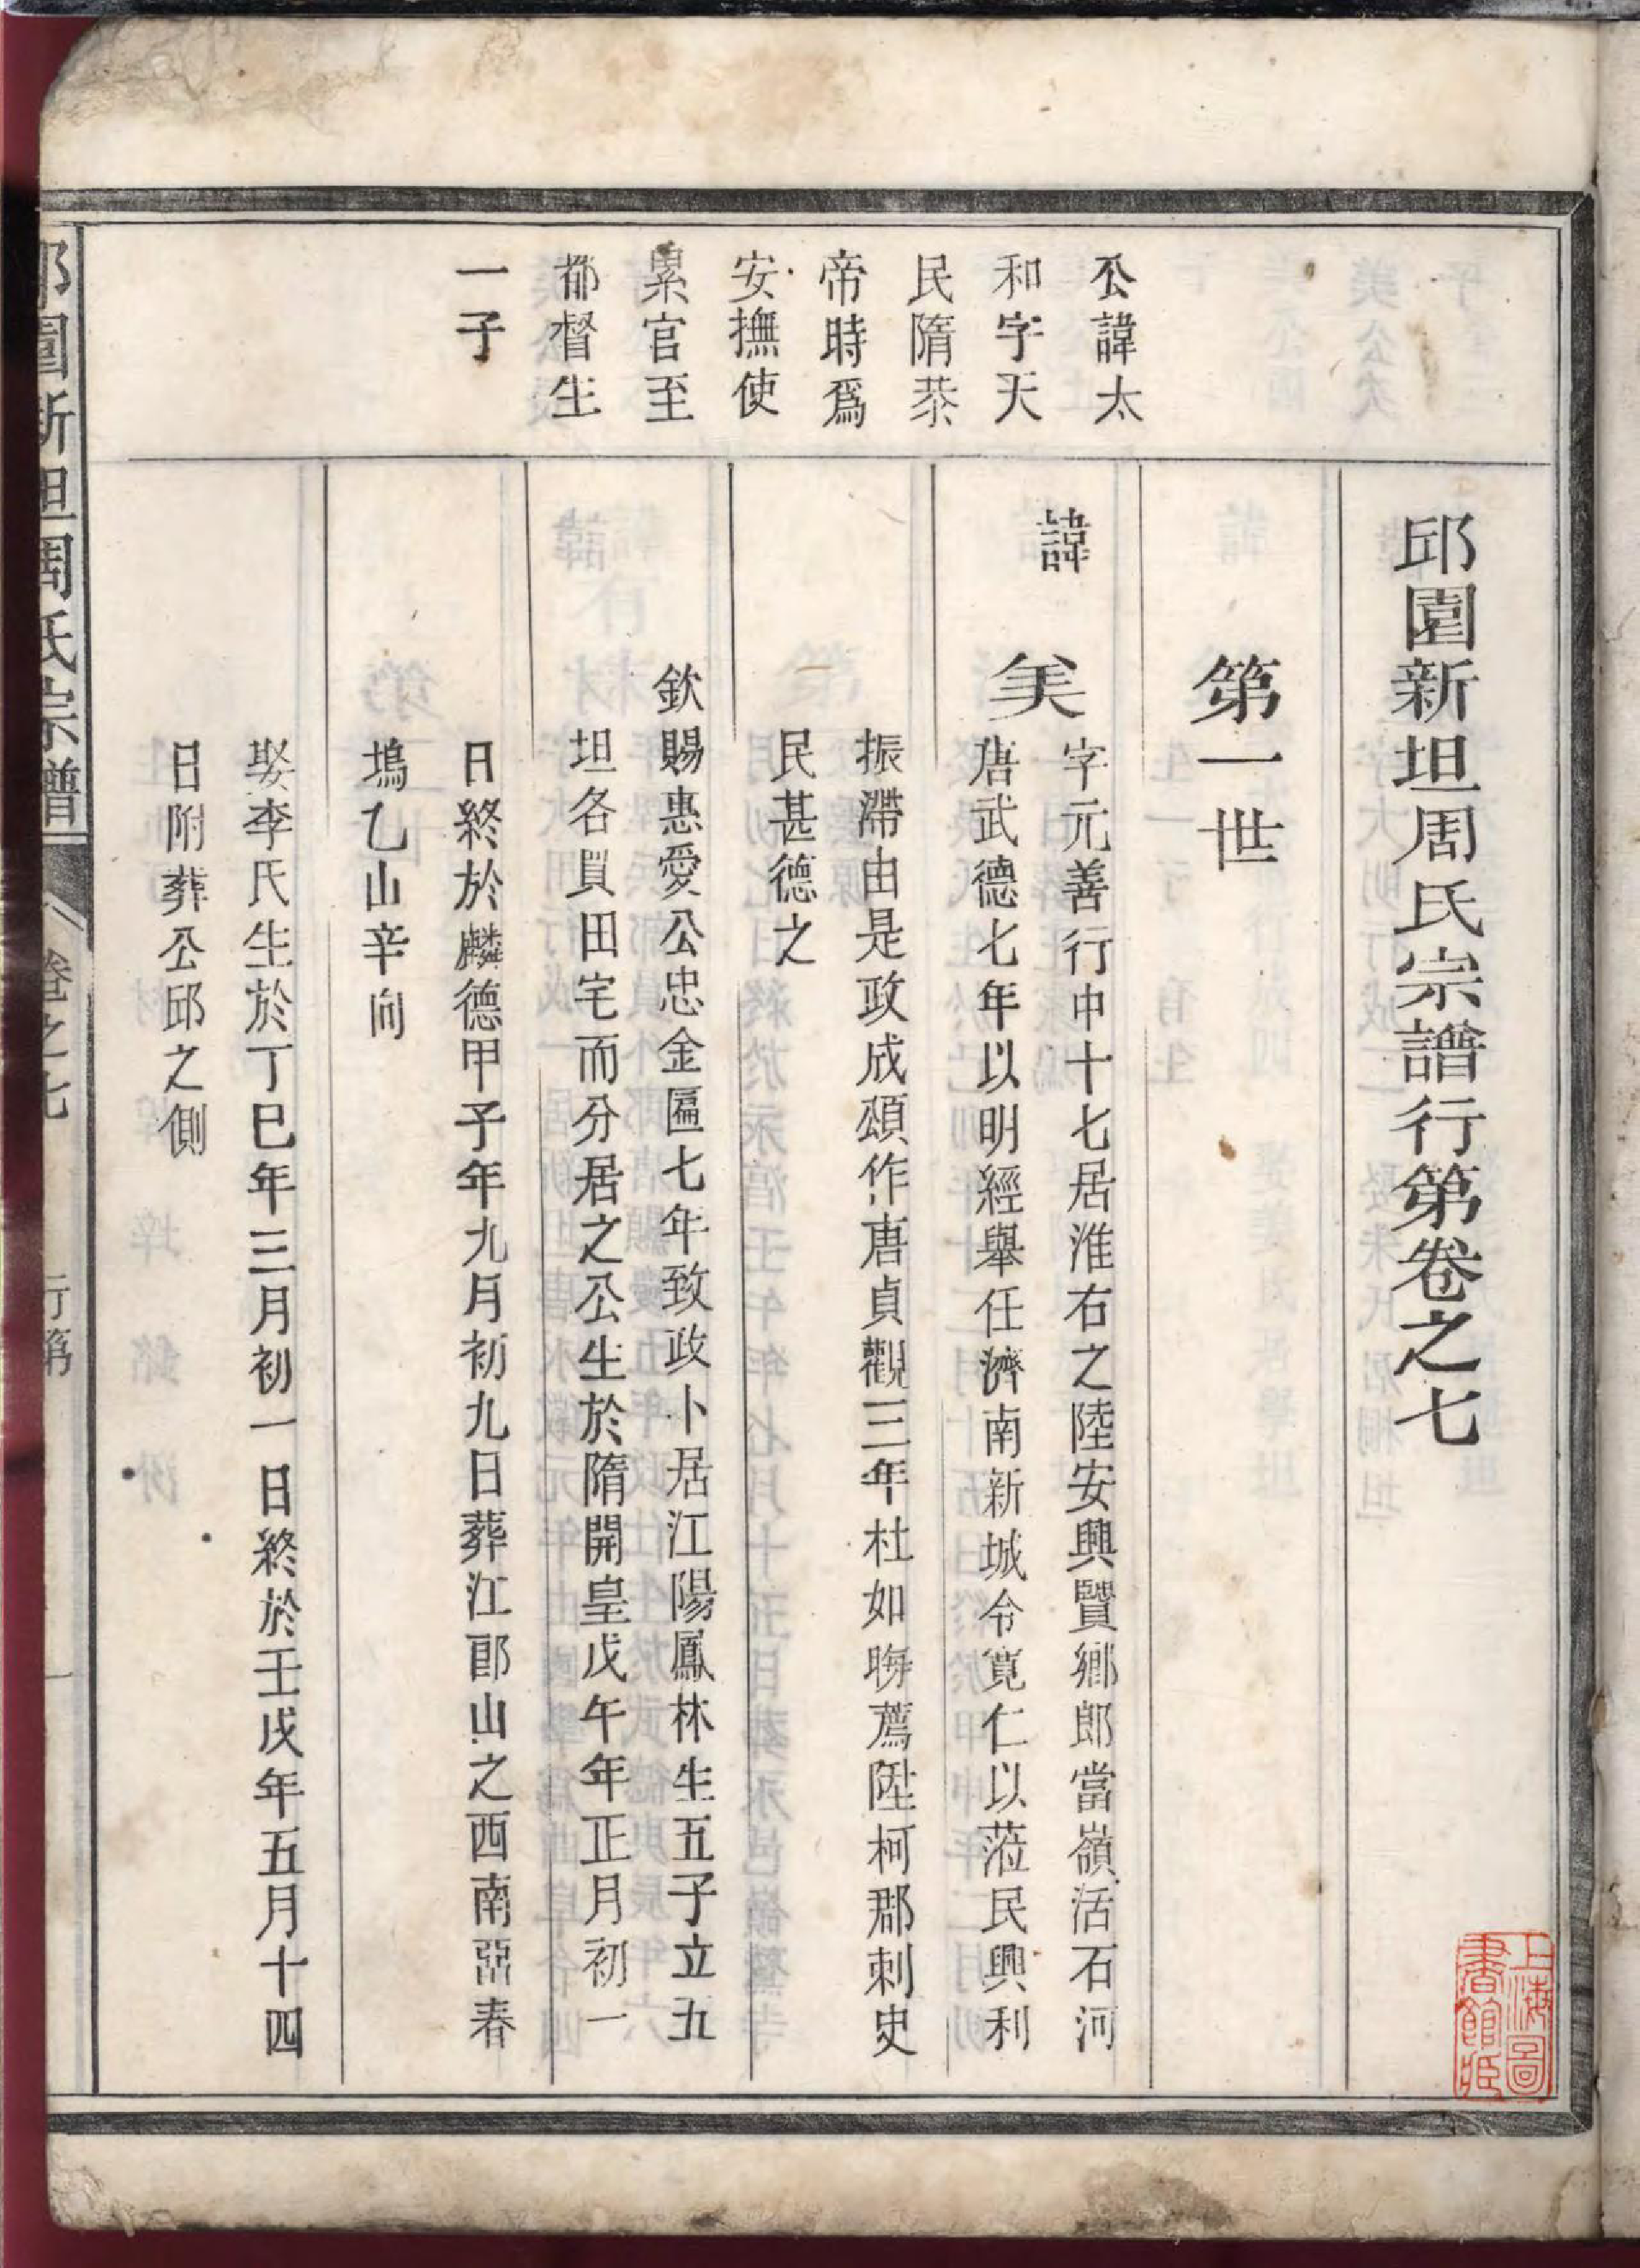 邱園新坦周氏宗譜行第卷之七
第一世
公諱太
和字天
民隋恭
帝時爲
安撫使
累官至
都督生
一子
諱
美
字元善行中十七居淮右之陸安興賢鄉郎當嶺活石河
唐武德七年以明經舉任濟南新城令寬仁以蒞民興利
振滯由是政成頌作唐貞觀三年杜如晦薦陞柯郡刺史
民甚德之
欽賜惠愛公忠金匾七年致政卜居江陽鳳林生五子立五
坦各買田宅而分居之公生於隋開皇戊午年正月初一
日終於麟德甲子年九月初九日葬江郎山之西南亞春
塢乙山辛向
娶李氏生於丁巳年三月初一日終於壬戌年五月十四
日附葬公邱之側
邱園新坦周氏宗譜
卷之七
行第
一
上海圖
書館藏